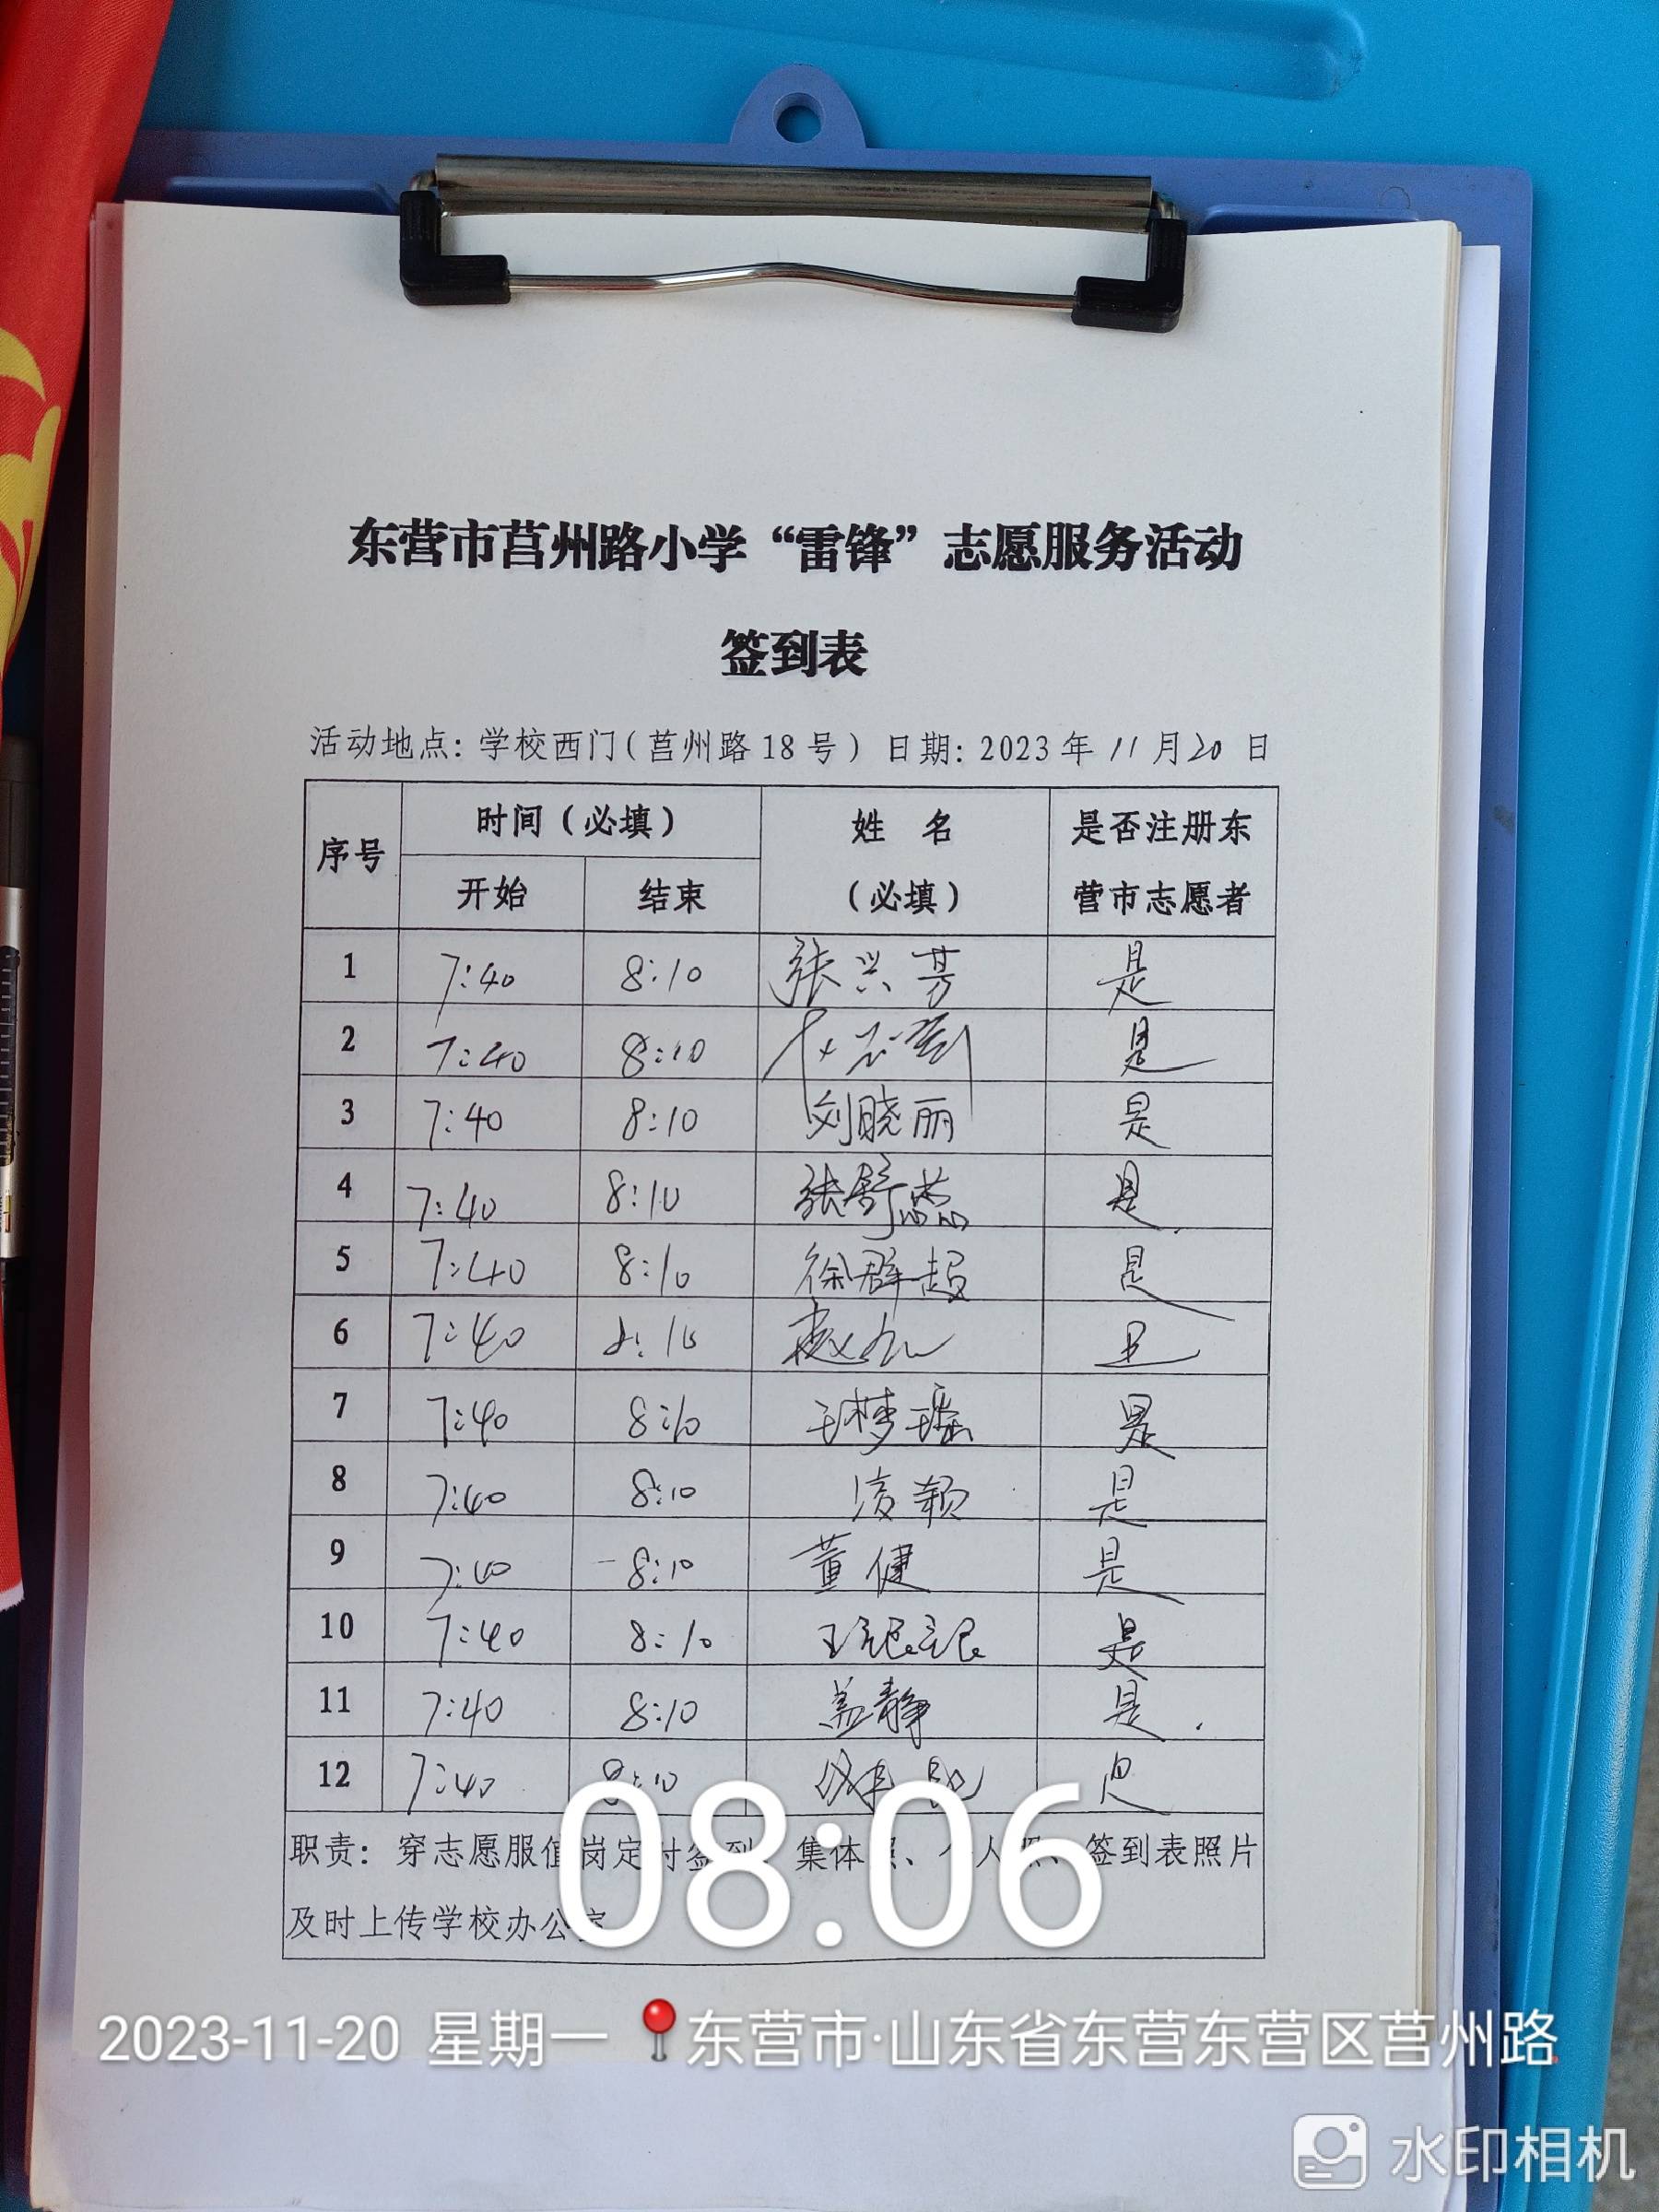 东营市莒州路小学“雷锋”志愿服务活动
签到表
活动地点：学校西门（莒州路18号）日期：2023年11月20日
序号 时间（必填） 姓 名（必填） 是否注册东营市志愿者
开始 结束
1 7:40 8:10 张兴芳 是
2 7:40 8:10 是
3 7:40 8:10 刘晓丽 是
4 7:40 8:10 张舒蕊 是
5 7:40 8:10 徐群超 是
6 7:40 8:10 赵 是
7 7:40 8:10 王梦瑶 是
8 7:40 8:10 凌颖 是
9 7:40 8:10 董健 是
10 7:40 8:10 王 是
11 7:40 8:10 盖静 是
12 7:40 8:10 是
职责：穿志愿服值岗定时签到 集体照、个人照、签到表照片
及时上传学校办公室
08:06
2023-11-20 星期一 东营市·山东省东营东营区莒州路
水印相机